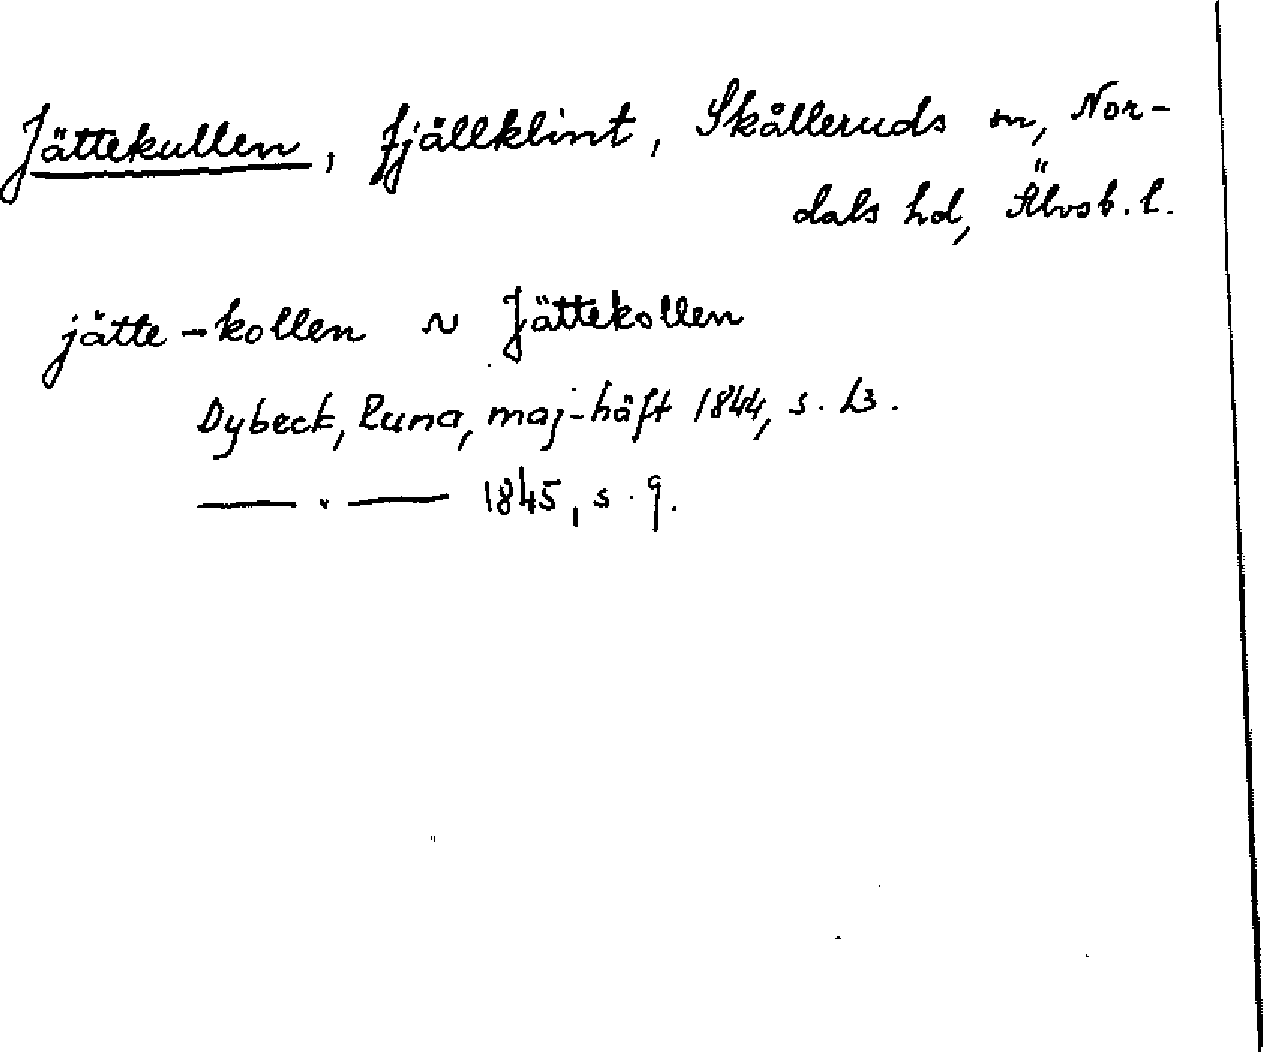 Jättekullen, fjällklint, Skålleruds sn, Nor-
dals hd, Älvsb. l.
jätte-kollen ~ Jättekollen
Dybeck, Runa, maj-häft 1844, s.
— " — 1845, s. 9.